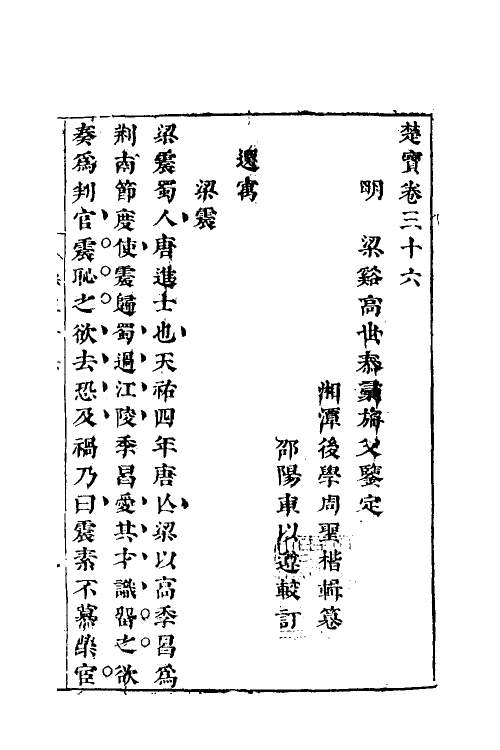 楚寶卷三十六
明　梁谿高世泰彚旃父鑒定
湘潭後學周聖楷輯纂
邵陽車以遵較訂
遷寓
梁震
梁震蜀人唐進士也天祐四年唐亾梁以高季昌爲
荆南節度使震歸蜀過江陵季昌愛其才識畱之欲
奏爲判官震恥之欲去恐及禍乃曰震素不慕榮宦